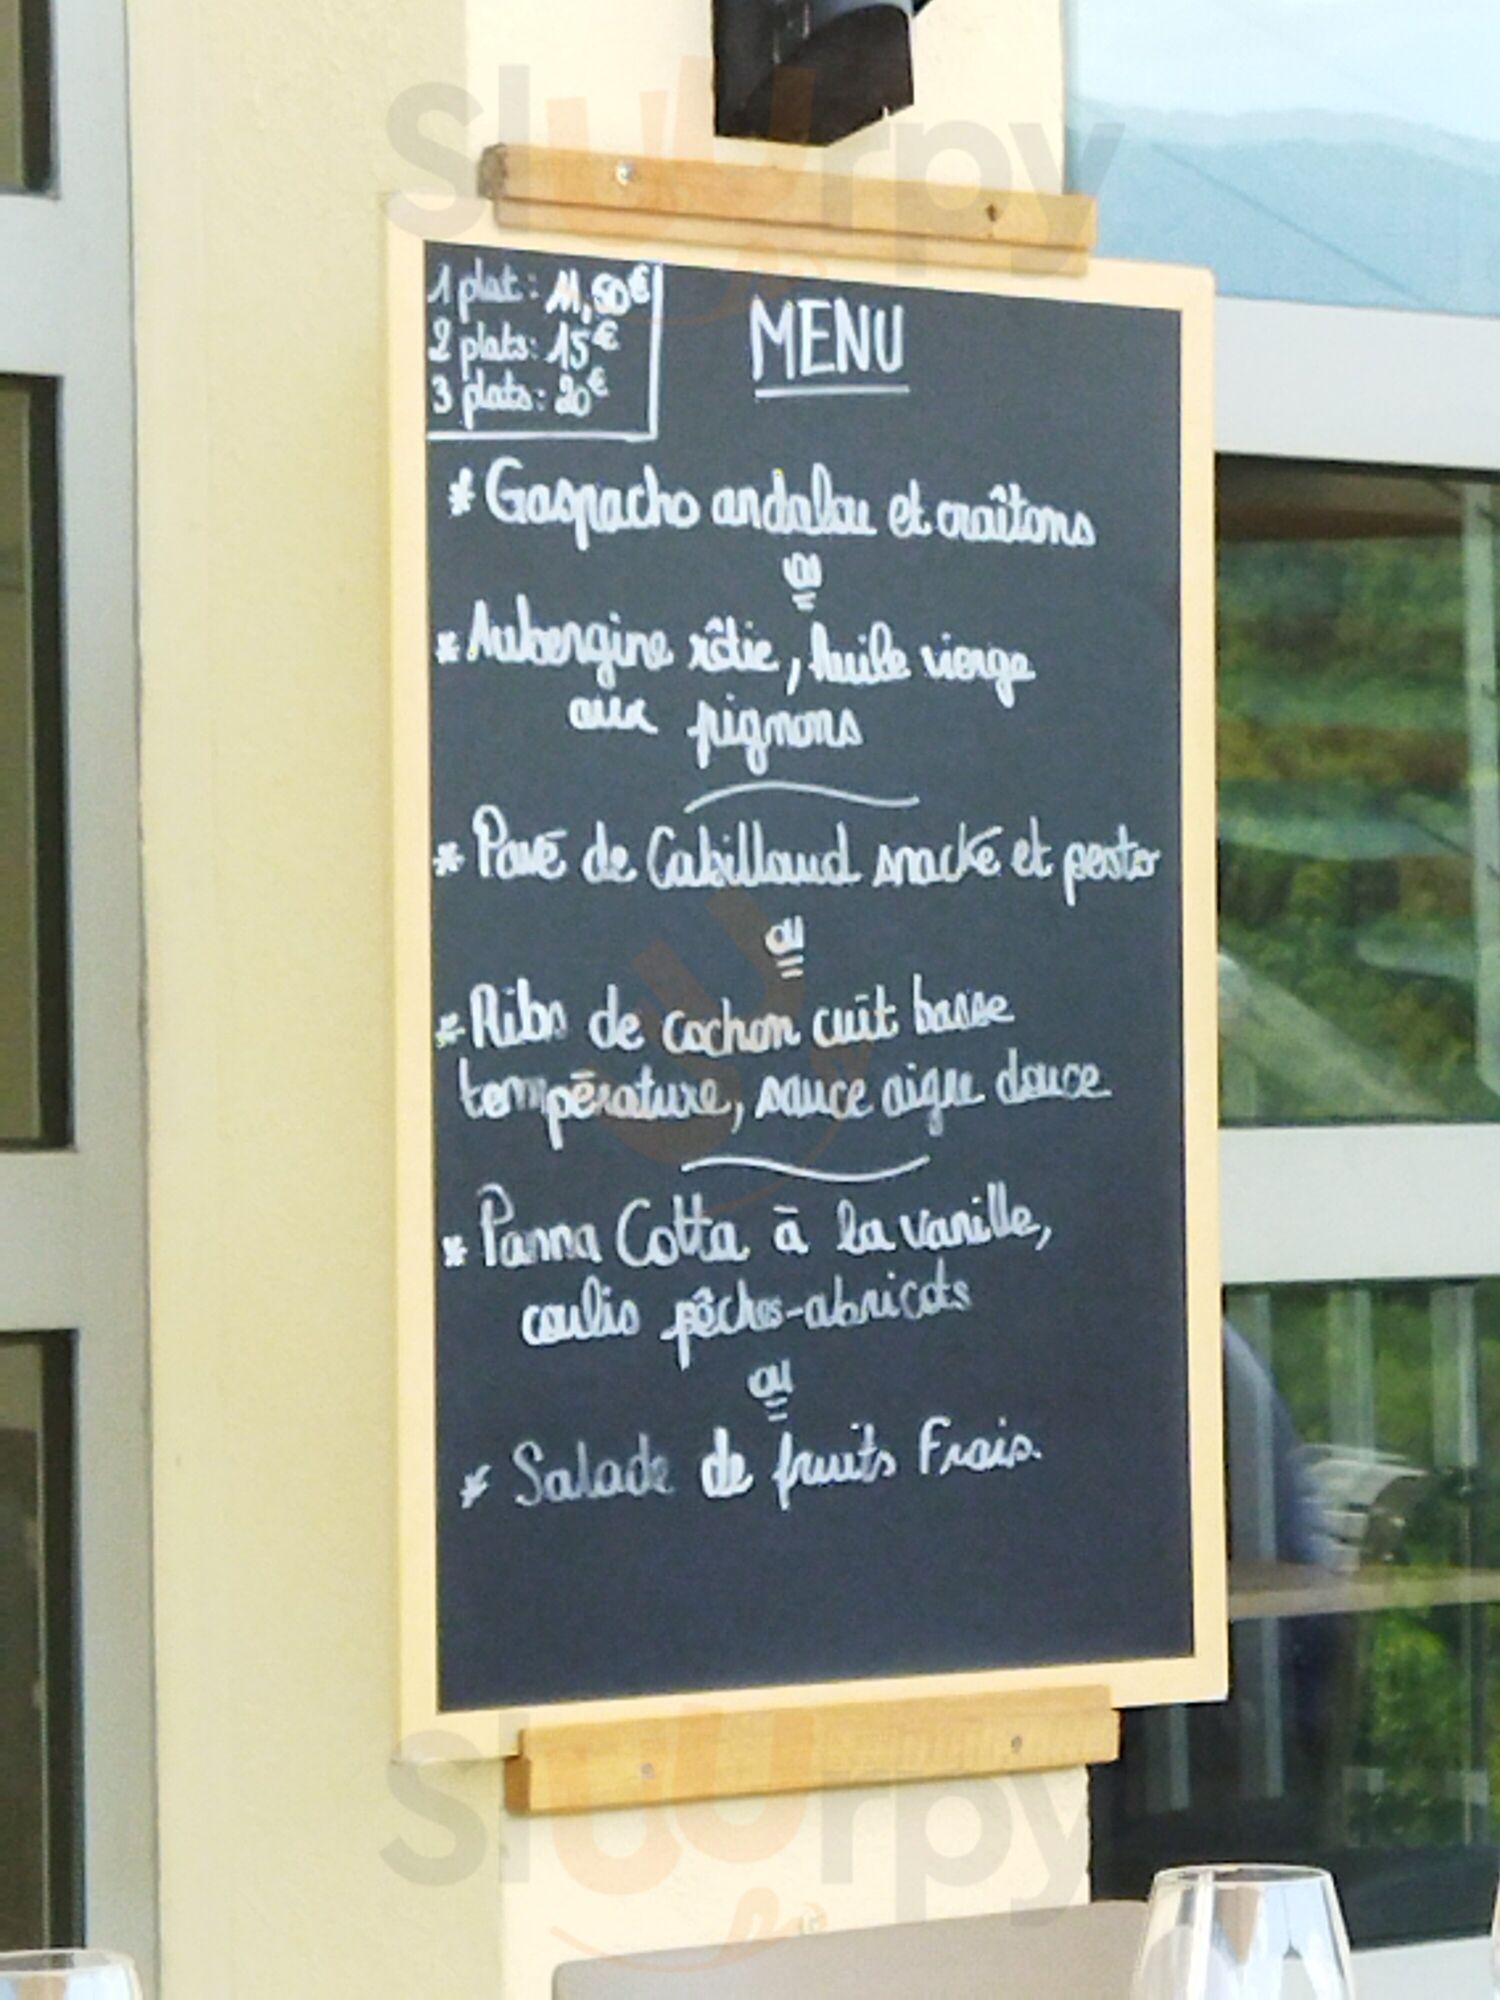 sluurpy
1 plat: 11,50€
2 plats: 15€
3 plats: 20€
MENU
* Gaspacho andalou et croûtons
ou
* Aubergine rôtie, huile vierge
aux pignons
* Pavé de Cabillaud snacké et pesto
ou
* Ribs de cochon cuit basse
température, sauce aigre douce
* Panna Cotta à la vanille,
coulis pêches-abricots
ou
* Salade de fruits Frais.
sluurpy